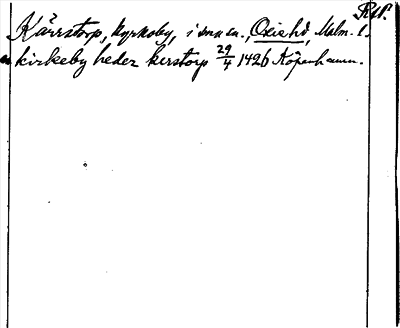 RAP.
Kärrstorp, kyrkoby, i sn m sn., Oxie hd, Malm. l.
kirkeby heder kerstorp 29/4 1426 Köpenhamn.